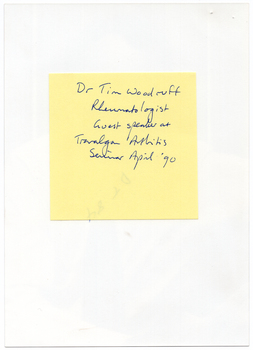 Dr Tim Woodruff
Rheumatologist
Guest speaker at
Traralgon Arthritis
Seminar April '90